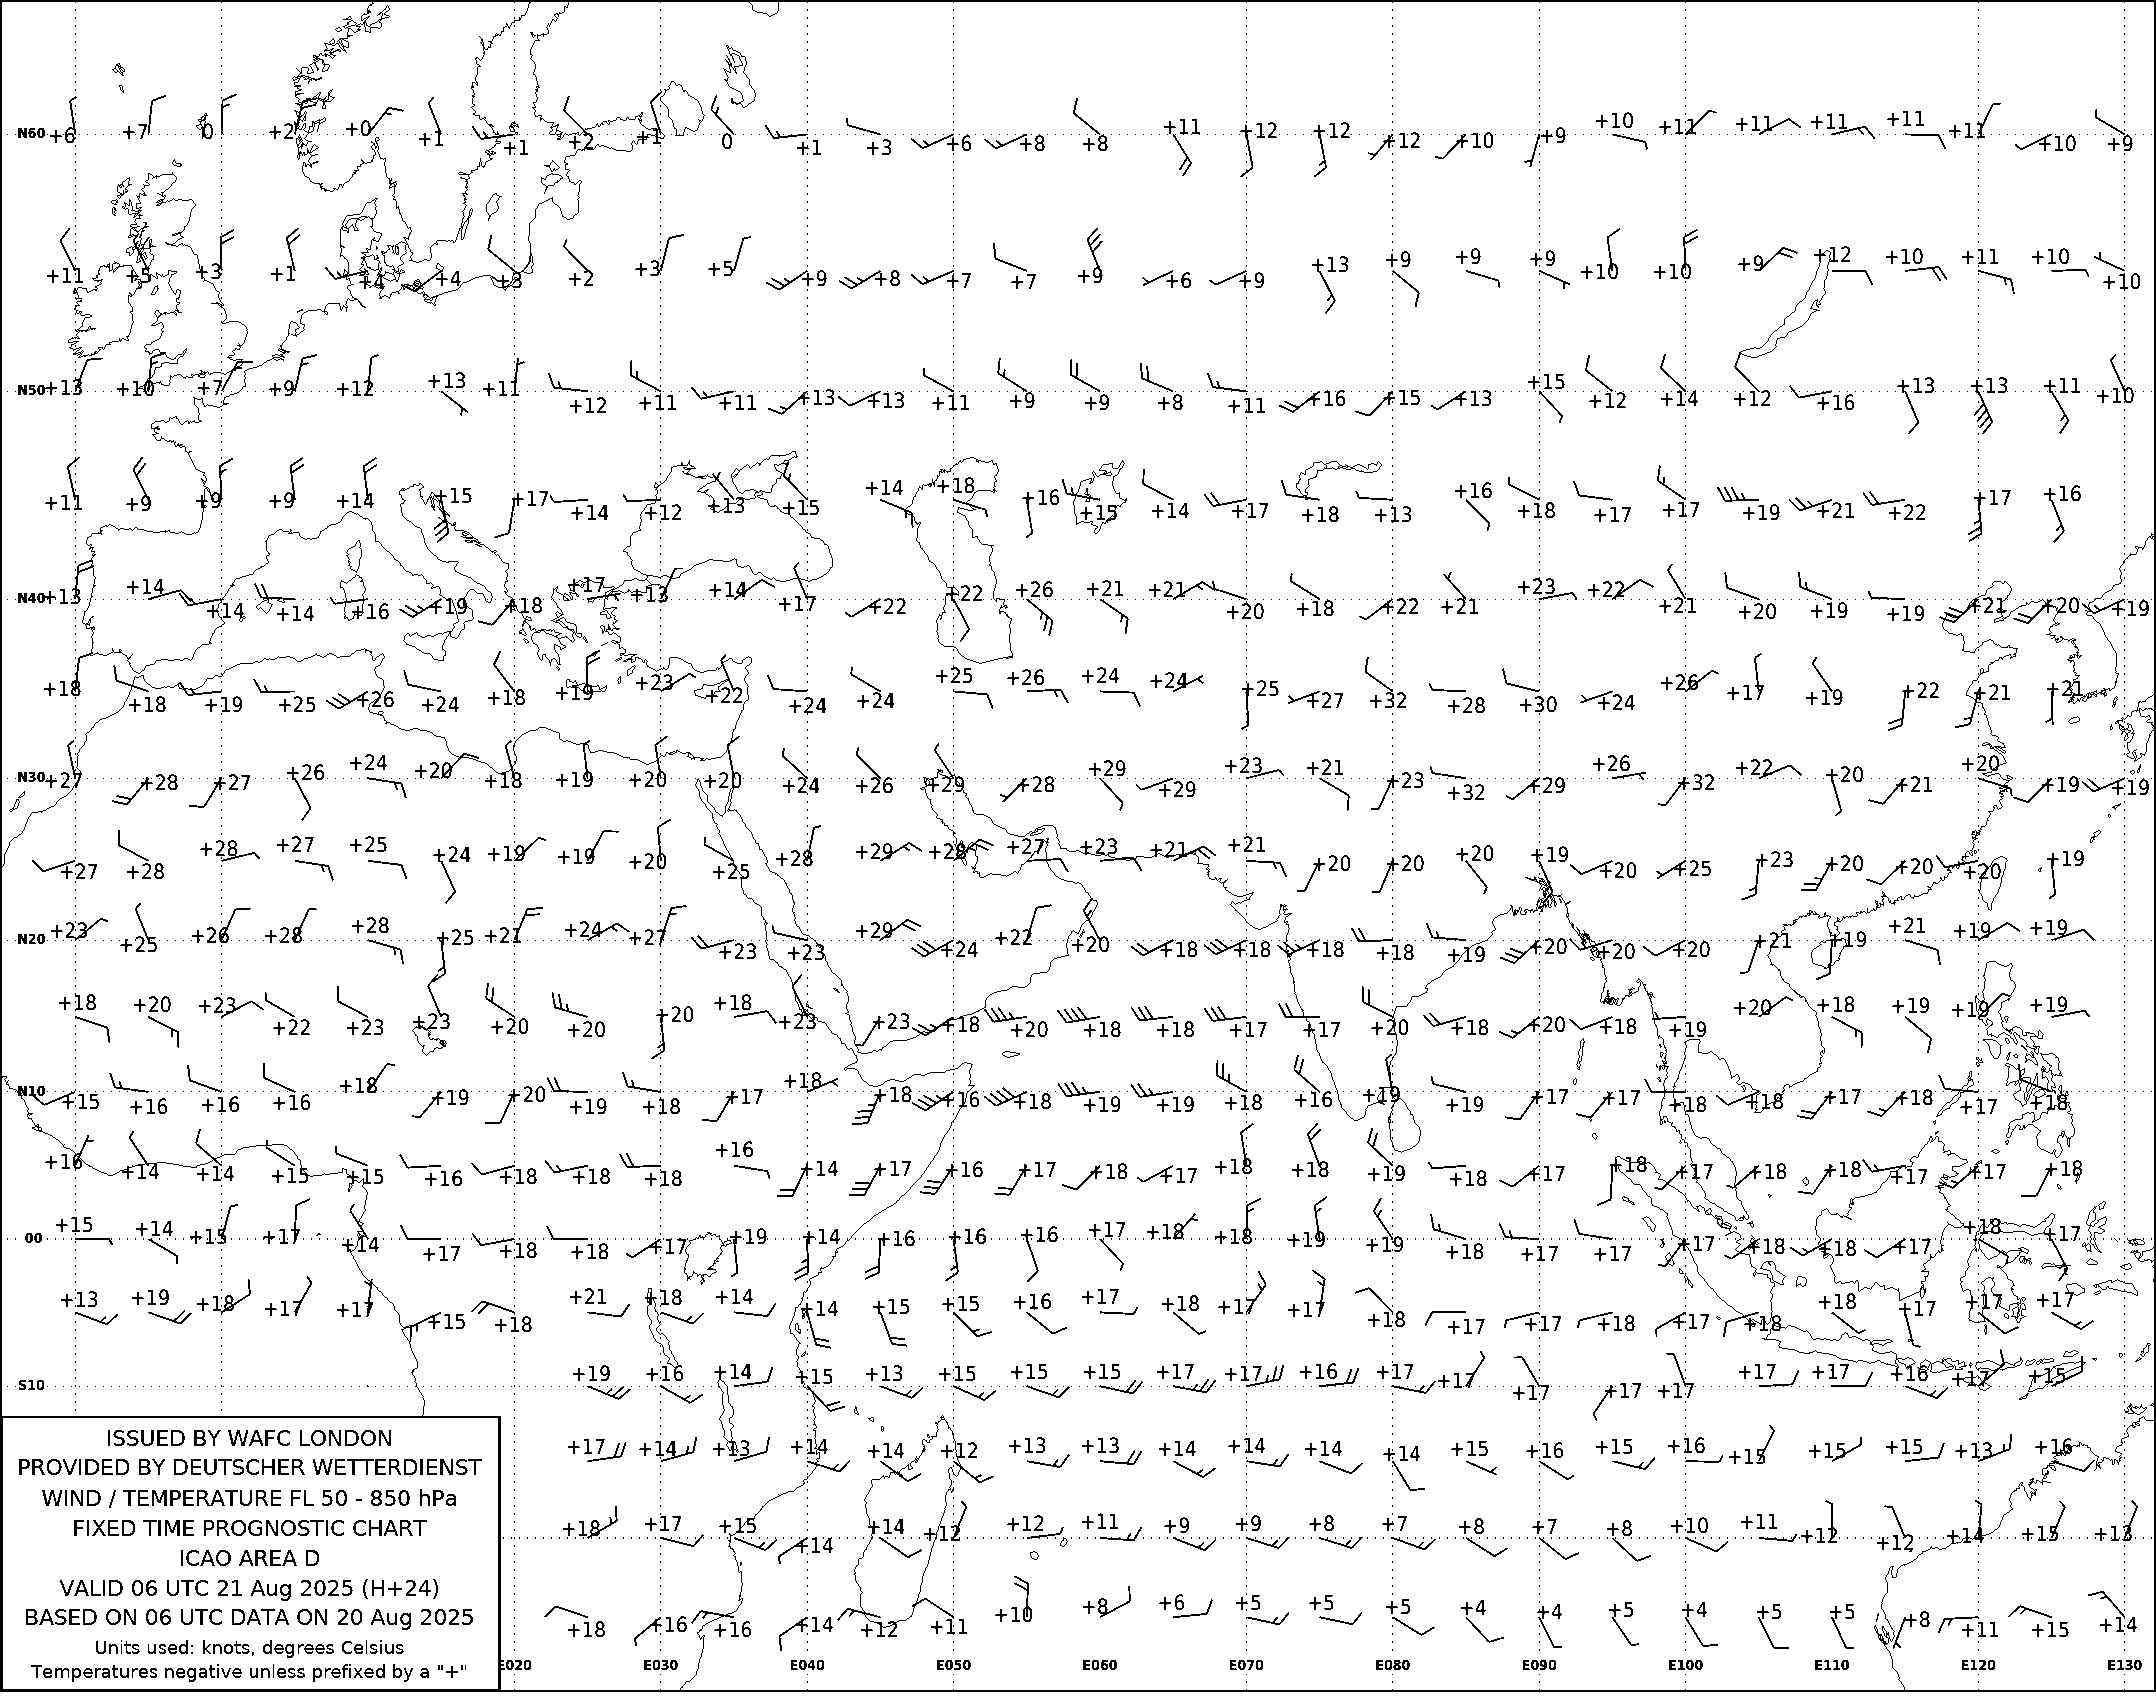 N60 +6 +7 0 +2 +0 +1 +1 +2 +1 0 +1 +3 +6 +8 +8 +11 +12 +12 +12 +10 +9 +10 +11 +11 +11 +11 +11 +10 +9
+11 +5 +3 +1 +4 +4 +3 +2 +3 +5 +9 +8 +7 +7 +9 +6 +9 +13 +9 +9 +9 +10 +10 +9 +12 +10 +11 +10 +10
N50 +13 +10 +7 +9 +12 +13 +11 +12 +11 +11 +13 +13 +11 +9 +9 +8 +11 +16 +15 +13 +15 +12 +14 +12 +16 +13 +13 +11 +10
+11 +9 +9 +9 +14 +15 +17 +14 +12 +13 +15 +14 +18 +16 +15 +14 +17 +18 +13 +16 +18 +17 +17 +19 +21 +22 +17 +16
N40 +13 +14 +14 +14 +16 +19 +18 +17 +13 +14 +17 +22 +22 +26 +21 +21 +20 +18 +22 +21 +23 +22 +21 +20 +19 +19 +21 +20 +19
+18 +18 +19 +25 +26 +24 +18 +19 +23 +22 +24 +24 +25 +26 +24 +24 +25 +27 +32 +28 +30 +24 +26 +17 +19 +22 +21 +21
N30 +27 +28 +27 +26 +24 +20 +18 +19 +20 +20 +24 +26 +29 +28 +29 +29 +23 +21 +23 +32 +29 +26 +32 +22 +20 +21 +20 +19 +19
+27 +28 +28 +27 +25 +24 +19 +19 +20 +25 +28 +29 +28 +27 +23 +21 +21 +20 +20 +20 +19 +20 +25 +23 +20 +20 +20 +19
N20 +23 +25 +26 +28 +28 +25 +21 +24 +27 +23 +23 +29 +24 +22 +20 +18 +18 +18 +18 +19 +20 +20 +20 +21 +19 +21 +19 +19
+18 +20 +23 +22 +23 +23 +20 +20 +20 +18 +23 +23 +18 +20 +18 +18 +17 +17 +20 +18 +20 +18 +19 +20 +18 +19 +19 +19
N10 +15 +16 +16 +16 +18 +19 +20 +19 +18 +17 +18 +18 +16 +18 +19 +19 +18 +16 +19 +19 +17 +17 +18 +18 +17 +18 +17 +18
+16 +14 +14 +15 +15 +16 +18 +18 +18 +16 +14 +17 +16 +17 +18 +17 +18 +18 +19 +18 +17 +18 +17 +18 +18 +17 +17 +18
00 +15 +14 +15 +17 +14 +17 +18 +18 +17 +19 +14 +16 +16 +16 +17 +18 +18 +19 +19 +18 +17 +17 +17 +18 +18 +17 +18 +17
+13 +19 +18 +17 +17 +15 +18 +21 +18 +14 +14 +15 +15 +16 +17 +18 +17 +17 +18 +17 +17 +18 +17 +18 +18 +17 +17 +17
S10 +19 +16 +14 +15 +13 +15 +15 +15 +17 +17 +16 +17 +17 +17 +17 +17 +17 +17 +16 +17 +15
+17 +14 +13 +14 +14 +12 +13 +13 +14 +14 +14 +14 +15 +16 +15 +16 +15 +15 +15 +13 +16
+18 +17 +15 +14 +14 +12 +12 +11 +9 +9 +8 +7 +8 +7 +8 +10 +11 +12 +12 +14 +15 +13
+18 +16 +16 +14 +12 +11 +10 +8 +6 +5 +5 +5 +4 +4 +5 +4 +5 +5 +8 +11 +15 +14
E020 E030 E040 E050 E060 E070 E080 E090 E100 E110 E120 E130
ISSUED BY WAFC LONDON
PROVIDED BY DEUTSCHER WETTERDIENST
WIND / TEMPERATURE FL 50 - 850 hPa
FIXED TIME PROGNOSTIC CHART
ICAO AREA D
VALID 06 UTC 21 Aug 2025 (H+24)
BASED ON 06 UTC DATA ON 20 Aug 2025
Units used: knots, degrees Celsius
Temperatures negative unless prefixed by a "+"